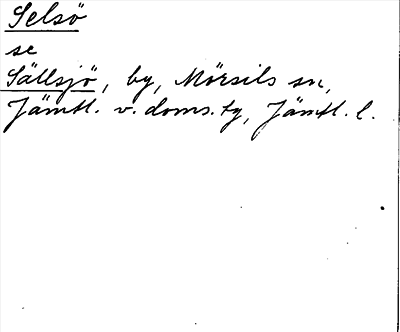 Selsö
se
Sällsjö, by, Mörsils sn,
Jämtl. v. doms. tg, Jämtl. l.